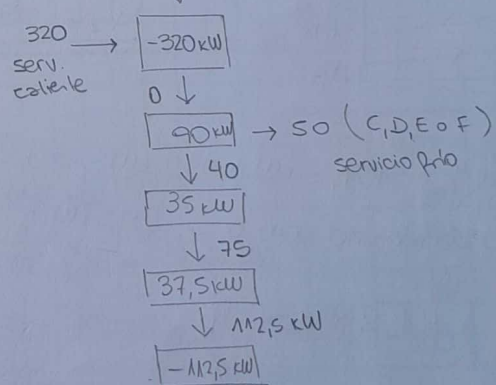 320
serv.
caliente
-320 kW
0
90 kW → 50 (C, D, E o F)
servicio frío
40
35 kW
75
37,5 kW
112,5 kW
-112,5 kW